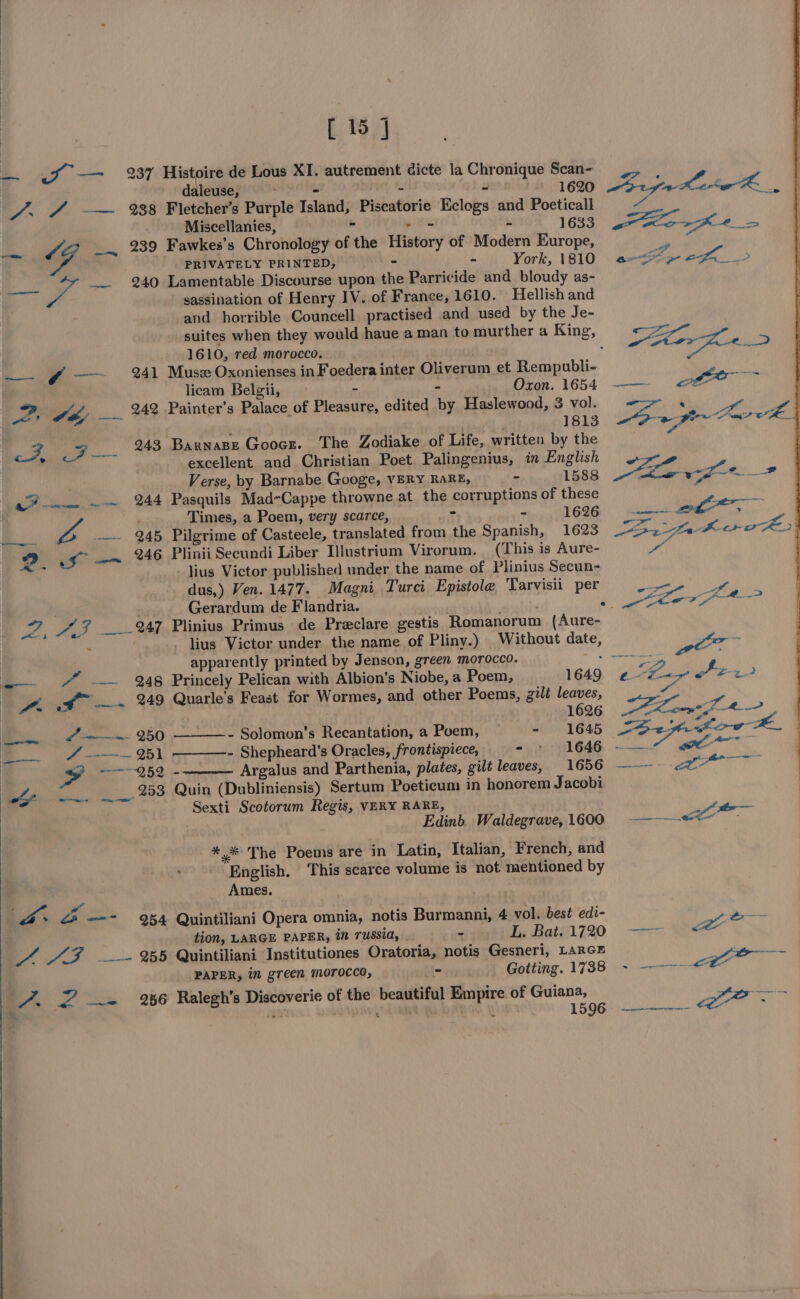 [ 15 ]
237 Histoire de Lous XI. autrement dicte la Chronique Scan-
daleuse, - - - 1620
238 Fletcher's Purple Island, Piscatorie Eclogs and Poeticall
Miscellanies, - - - 1633
239 Fawkes's Chronology of the History of Modern Europe,
PRIVATELY PRINTED, - - York, 1810
240 Lamentable Discourse upon the Parricide and bloudy as-
sassination of Henry IV. of France, 1610. Hellish and
and horrible Councell practised and used by the Je-
suites when they would haue a man to murther a King,
1610, red morocco.
241 Musæ Oxonienses in Foedera inter Oliverum et Rempubli-
licam Belgii, - - Oxon. 1654
242 Painter's Palace of Pleasure, edited by Haslewood, 3 vol.
1813
243 BARNABE GOOGE. The Zodiake of Life, written by the
excellent and Christian Poet Palingenius, in English
Verse, by Barnabe Googe, VERY RARE, - 1588
244 Pasquils Mad-Cappe throwne at the corruptions of these
Times, a Poem, very scarce, - - 1626
245 Pilgrime of Casteele, translated from the Spanish, 1623
246 Plinii Secundi Liber Illustrium Virorum. (This is Aure-
lius Victor published under the name of Plinius Secun-
dus,) Ven. 1477. Magni Turci Epistole Tarvisii per
Gerardum de Flandria.
247 Plinius Primus de Præclare gestis Romanorum (Aure-
lius Victor under the name of Pliny.) Without date,
apparently printed by Jenson, green morocco.
248 Princely Pelican with Albion's Niobe, a Poem, 1649
249 Quarle's Feast for Wormes, and other Poems, gilt leaves,
1626
250 ——— - Solomon's Recantation, a Poem, - 1645
251 ——— - Shepheard's Oracles, frontispiece, - 1646
252 - ——— Argalus and Parthenia, plates, gilt leaves, 1656
253 Quin (Dubliniensis) Sertum Poeticum in honorem Jacobi
Sexti Scotorum Regis, VERY RARE,
Edinb Waldegrave, 1600
*** The Poems are in Latin, Italian, French, and
English. This scarce volume is not mentioned by
Ames.
254 Quintiliani Opera omnia, notis Burmanni, 4 vol. best edi-
tion, LARGE PAPER, in russia, - L. Bat. 1720
255 Quintiliani Institutiones Oratoria, notis Gesneri, LARGE
PAPER, in green morocco, - Gotting. 1738
256 Ralegh's Discoverie of the beautiful Empire of Guiana,
1596